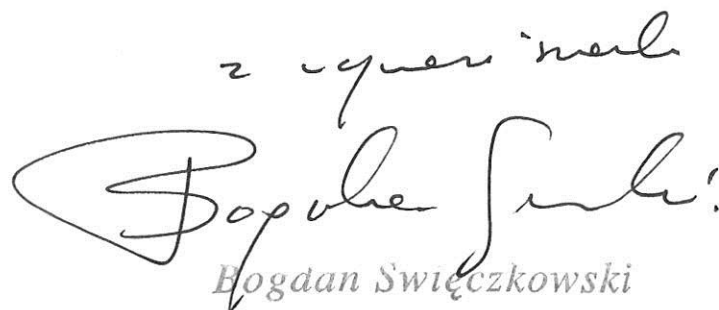 z wyrazami szacunku
Bogdan Święczkowski
Bogdan Święczkowski